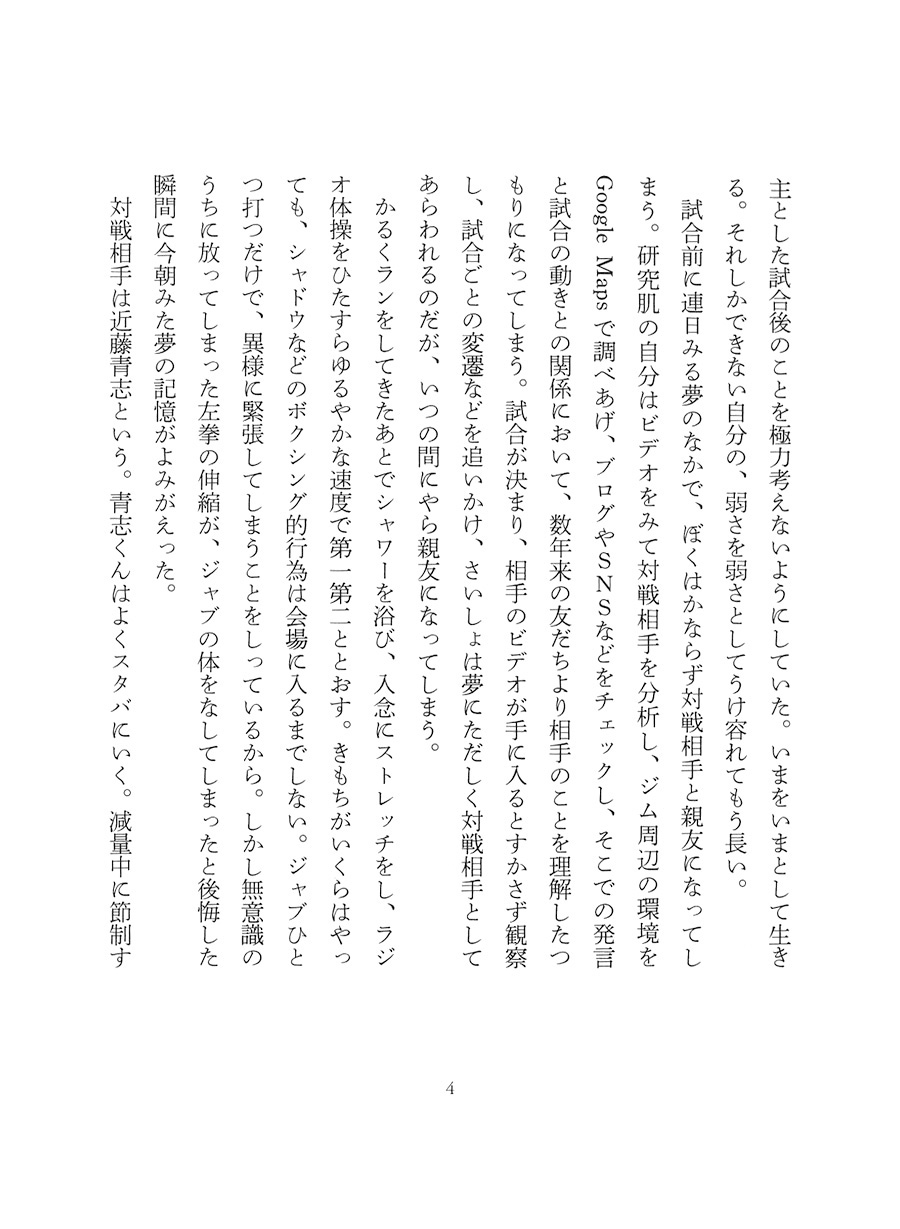 主とした試合後のことを極力考えないようにしていた。いまをいまとして生き
る。それしかできない自分の、弱さを弱さとしてうけ容れてもう長い。
　試合前に連日みる夢のなかで、ぼくはかならず対戦相手と親友になってし
まう。研究肌の自分はビデオをみて対戦相手を分析し、ジム周辺の環境を
Google Maps で調べあげ、ブログやＳＮＳなどをチェックし、そこでの発言
と試合の動きとの関係において、数年来の友だちより相手のことを理解したつ
もりになってしまう。試合が決まり、相手のビデオが手に入るとすかさず観察
し、試合ごとの変遷などを追いかけ、さいしょは夢にただしく対戦相手として
あらわれるのだが、いつの間にやら親友になってしまう。
　かるくランをしてきたあとでシャワーを浴び、入念にストレッチをし、ラジ
オ体操をひたすらゆるやかな速度で第一第二ととおす。きもちがいくらはやっ
ても、シャドウなどのボクシング的行為は会場に入るまでしない。ジャブひと
つ打つだけで、異様に緊張してしまうことをしっているから。しかし無意識の
うちに放ってしまった左拳の伸縮が、ジャブの体をなしてしまったと後悔した
瞬間に今朝みた夢の記憶がよみがえった。
　対戦相手は近藤青志という。青志くんはよくスタバにいく。減量中に節制す
4